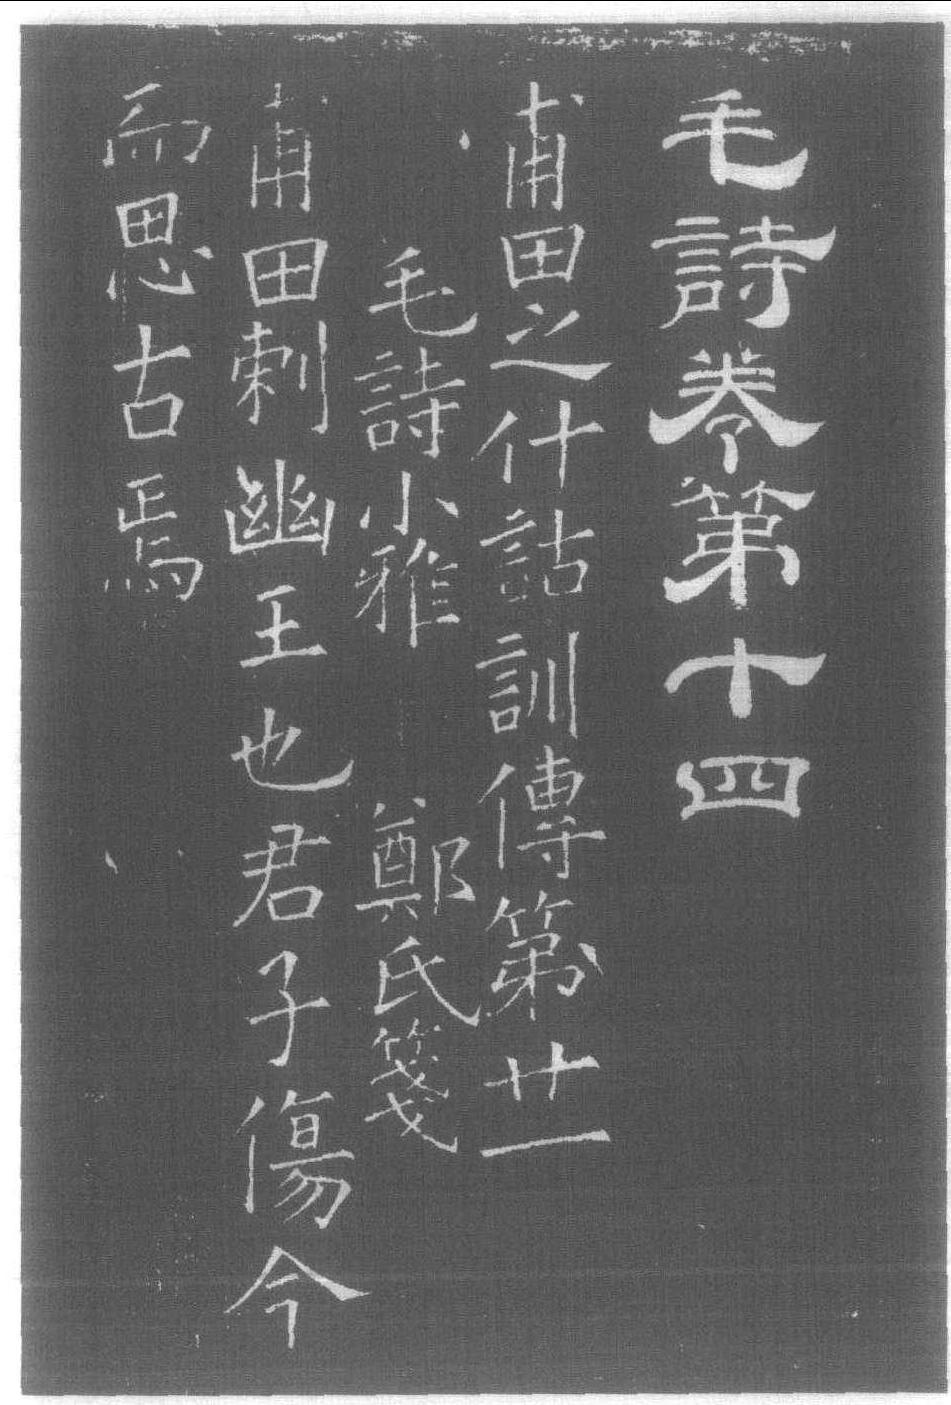 毛詩卷第十四
甫田之什詁訓傳第廿一
毛詩小雅 鄭氏箋
甫田刺幽王也君子傷今
而思古焉